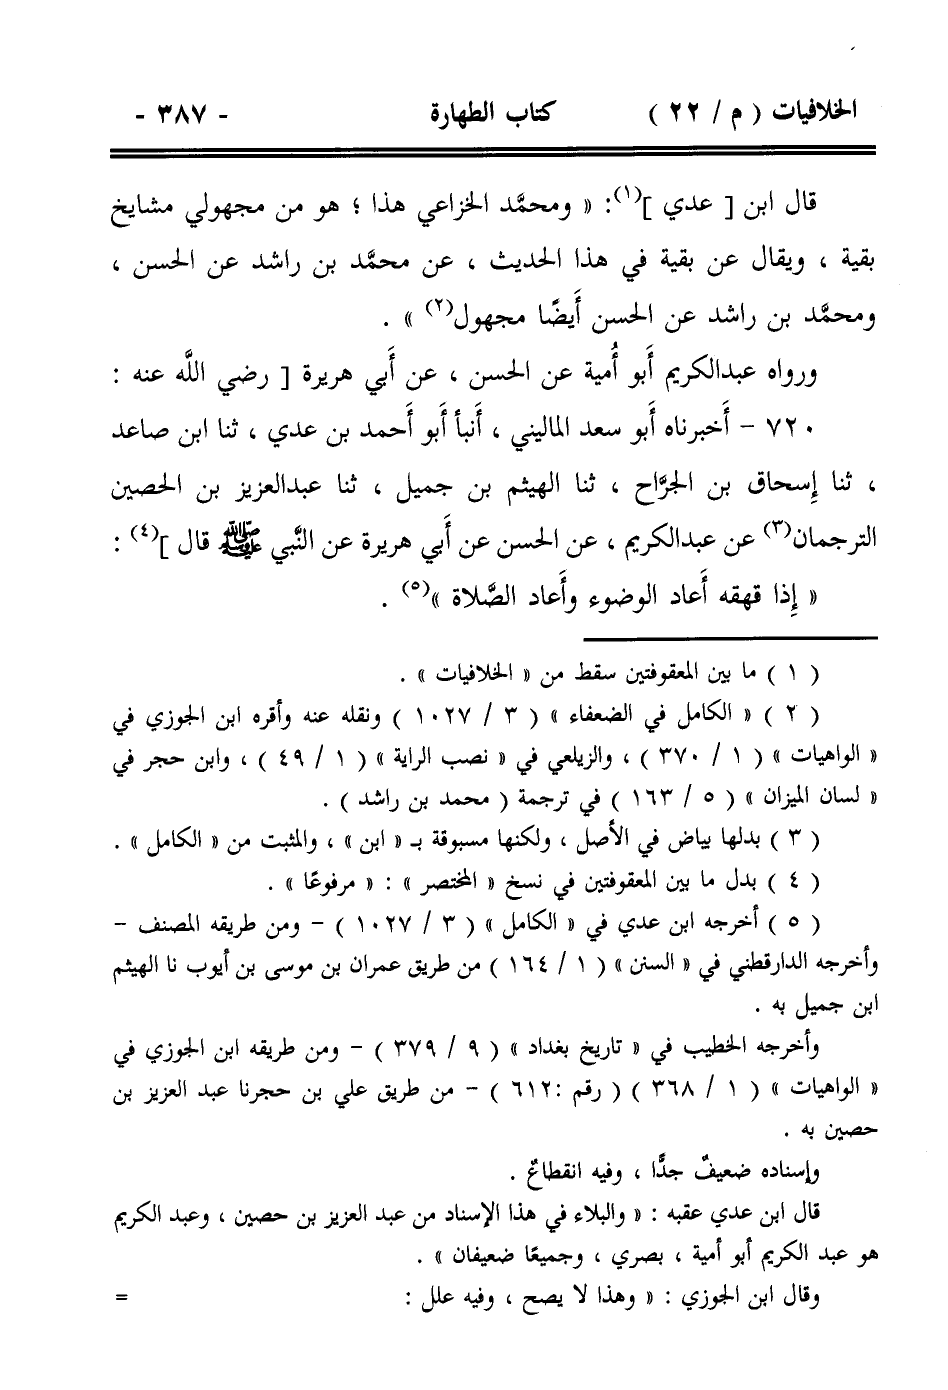 الخلافيات ( م / ٢٢ ) كتاب الطهارة - ٣٨٧ -
قال ابن [ عدي ](١): « ومحمَّد الخزاعي هذا ؛ هو من مجهولي مشايخ
بقية ، ويقال عن بقية في هذا الحديث ، عن محمَّد بن راشد عن الحسن ،
ومحمَّد بن راشد عن الحسن أَيضًا مجهول(٢) » .
ورواه عبدالكريم أَبو أُمية عن الحسن ، عن أَبي هريرة [ رضي اللَّه عنه :
٧٢٠ - أَخبرناه أَبو سعد الماليني ، أَنبأ أَبو أَحمد بن عدي ، ثنا ابن صاعد
، ثنا إِسحاق بن الجرَّاح ، ثنا الهيثم بن جميل ، ثنا عبدالعزيز بن الحصين
الترجمان(٣) عن عبدالكريم ، عن الحسن عن أَبي هريرة عن النَّبي ﷺ قال ](٤) :
« إِذا قهقه أَعاد الوضوء وأَعاد الصَّلاة »(٥) .
( ١ ) ما بين المعقوفتين سقط من « الخلافيات » .
( ٢ ) « الكامل في الضعفاء » ( ٣ / ١٠٢٧ ) ونقله عنه وأقره ابن الجوزي في
« الواهيات » ( ١ / ٣٧٠ ) ، والزيلعي في « نصب الراية » ( ١ / ٤٩ ) ، وابن حجر في
« لسان الميزان » ( ٥ / ١٦٣ ) في ترجمة ( محمد بن راشد ) .
( ٣ ) بدلها بياض في الأصل ، ولكنها مسبوقة بـ « ابن » ، والمثبت من « الكامل » .
( ٤ ) بدل ما بين المعقوفتين في نسخ « المختصر » : « مرفوعًا » .
( ٥ ) أخرجه ابن عدي في « الكامل » ( ٣ / ١٠٢٧ ) - ومن طريقه المصنف -
وأخرجه الدارقطني في « السنن » ( ١ / ١٦٤ ) من طريق عمران بن موسى بن أيوب نا الهيثم
ابن جميل به .
وأخرجه الخطيب في « تاريخ بغداد » ( ٩ / ٣٧٩ ) - ومن طريقه ابن الجوزي في
« الواهيات » ( ١ / ٣٦٨ ) ( رقم :٦١٢ ) - من طريق علي بن حجرنا عبد العزيز بن
حصين به .
وإسناده ضعيفٌ جدًّا ، وفيه انقطاعٌ .
قال ابن عدي عقبه : « والبلاء في هذا الإسناد من عبد العزيز بن حصين ، وعبد الكريم
هو عبد الكريم أبو أمية ، بصري ، وجميعًا ضعيفان » .
وقال ابن الجوزي : « وهذا لا يصح ، وفيه علل : =